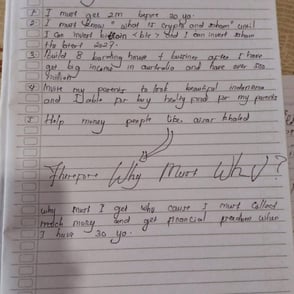 1 I must get 2m before 30 yo.
2 I must " what is crypto and saham" until
I can invest <btc> and I can invest saham
the 2027.
3 Build 8 boarding house & bussines after I have
get big income in australia and have over 500
4 my parents to beautiful indonesia
and I able for buy healty food for my parents
5 Help money people like
Therefore Why Must Why?
why must I get cause I must collect
money and get financial freedom when
I have 30 yo.